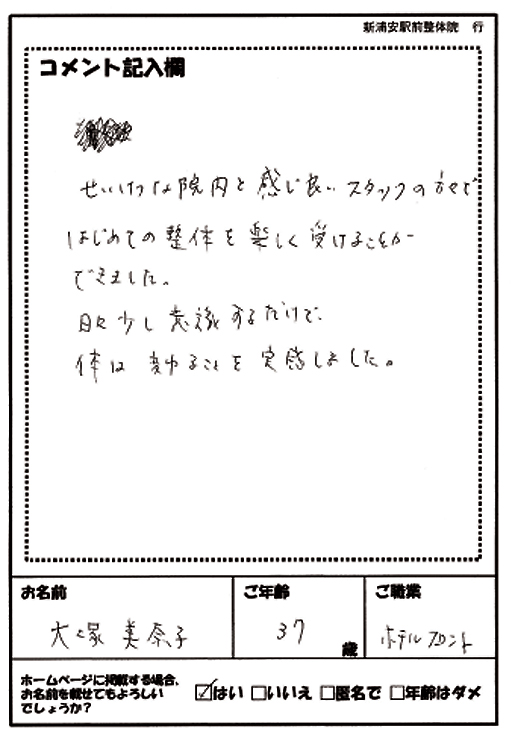 新浦安駅前整体院 行
コメント記入欄
せいけつな院内と感じ良いスタッフの方々で
はじめての整体を楽しく受けることが
できました。
日々少し意識するだけで、
体は変わることを実感しました。
お名前
大塚 美奈子
ご年齢
37
歳
ご職業
ホテルフロント
ホームページに掲載する場合、
お名前を載せてもよろしい
でしょうか?
☑はい □いいえ □匿名で □年齢はダメ